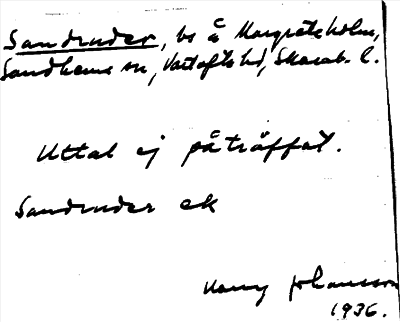 Sandruder, bs å Margreteholm,
Sandhems sn, Vartofts hd, Skarab. l.
Uttal ej påträffat.
Sandruder ek
Harry Johansson
1936.